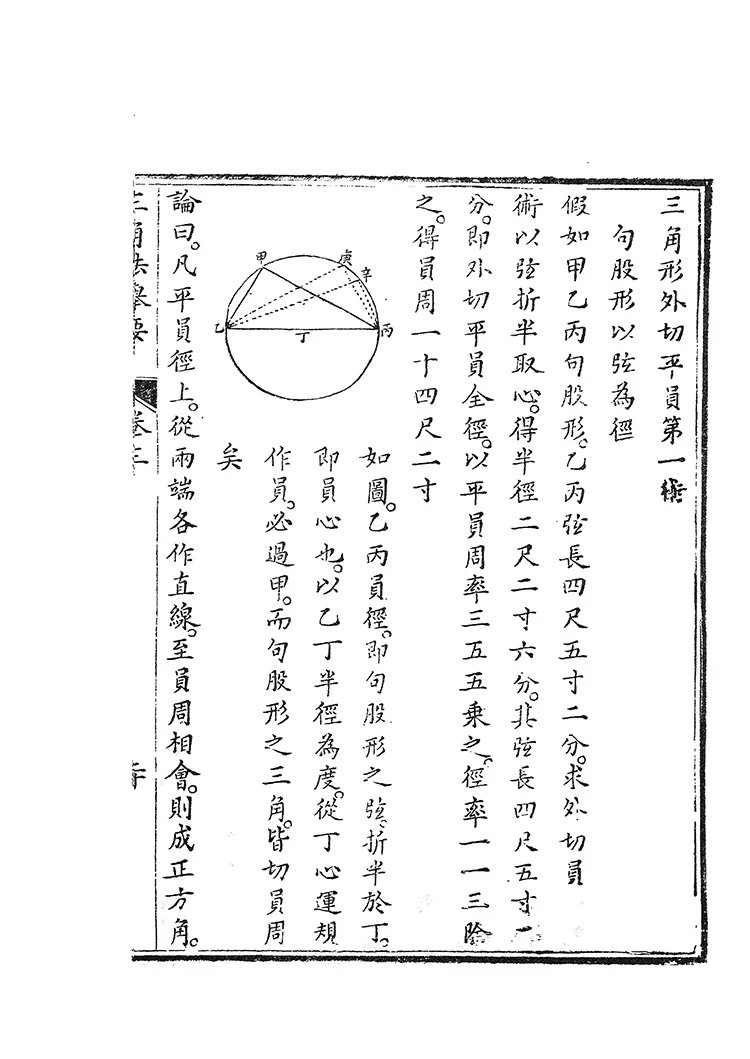 三角形外切平員第一術
句股形以弦為徑
假如甲乙丙句股形。乙丙弦長四尺五寸二分。求外切員
術以弦折半取心。得半徑二尺二寸六分。其弦長四尺五寸二
分。即外切平員全徑。以平員周率三五五乘之。徑率一一三除
之。得員周一十四尺二寸
甲
庚
辛
乙
丁
丙
如圖。乙丙員徑。即句股形之弦。折半於丁。
即員心也。以乙丁半徑為度。從丁心運規
作員。必過甲。而句股形之三角。皆切員周
矣
論曰。凡平員徑上。從兩端各作直線。至員周相會。則成正方角。
三角法舉要
卷三